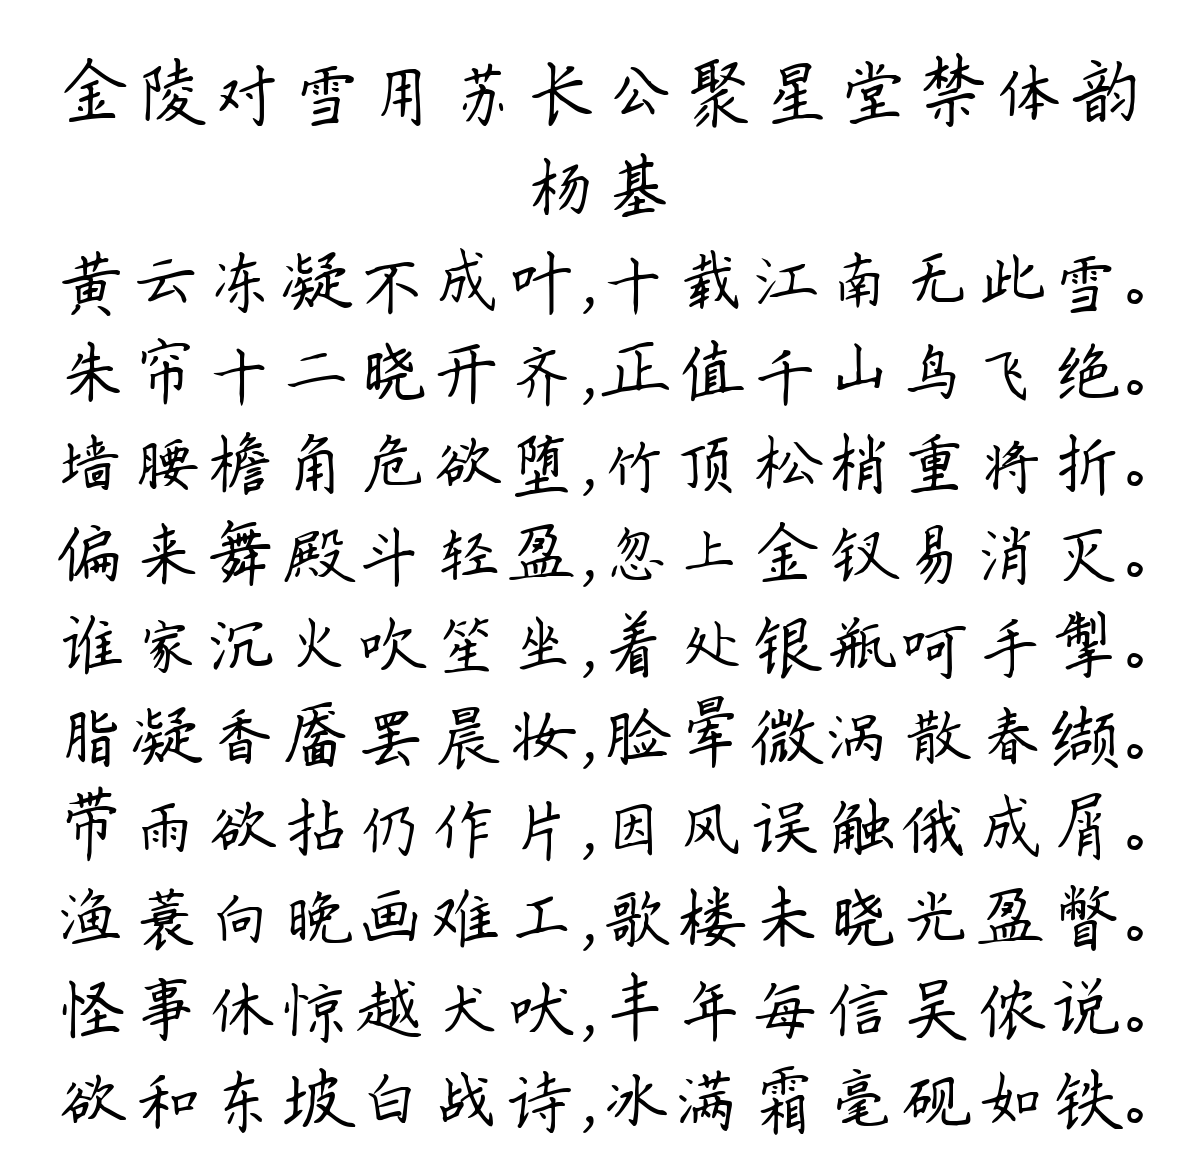 金陵对雪用苏长公聚星堂禁体韵
杨基
黄云冻凝不成叶,十载江南无此雪。
朱帘十二晓开齐,正值千山鸟飞绝。
墙腰檐角危欲堕,竹顶松梢重将折。
偏来舞殿斗轻盈,忽上金钗易消灭。
谁家沉火吹笙坐,着处银瓶呵手掣。
脂凝香靥罢晨妆,脸晕微涡散春缬。
带雨欲拈仍作片,因风误触俄成屑。
渔蓑向晚画难工,歌楼未晓光盈瞥。
怪事休惊越犬吠,丰年每信吴侬说。
欲和东坡白战诗,冰满霜毫砚如铁。